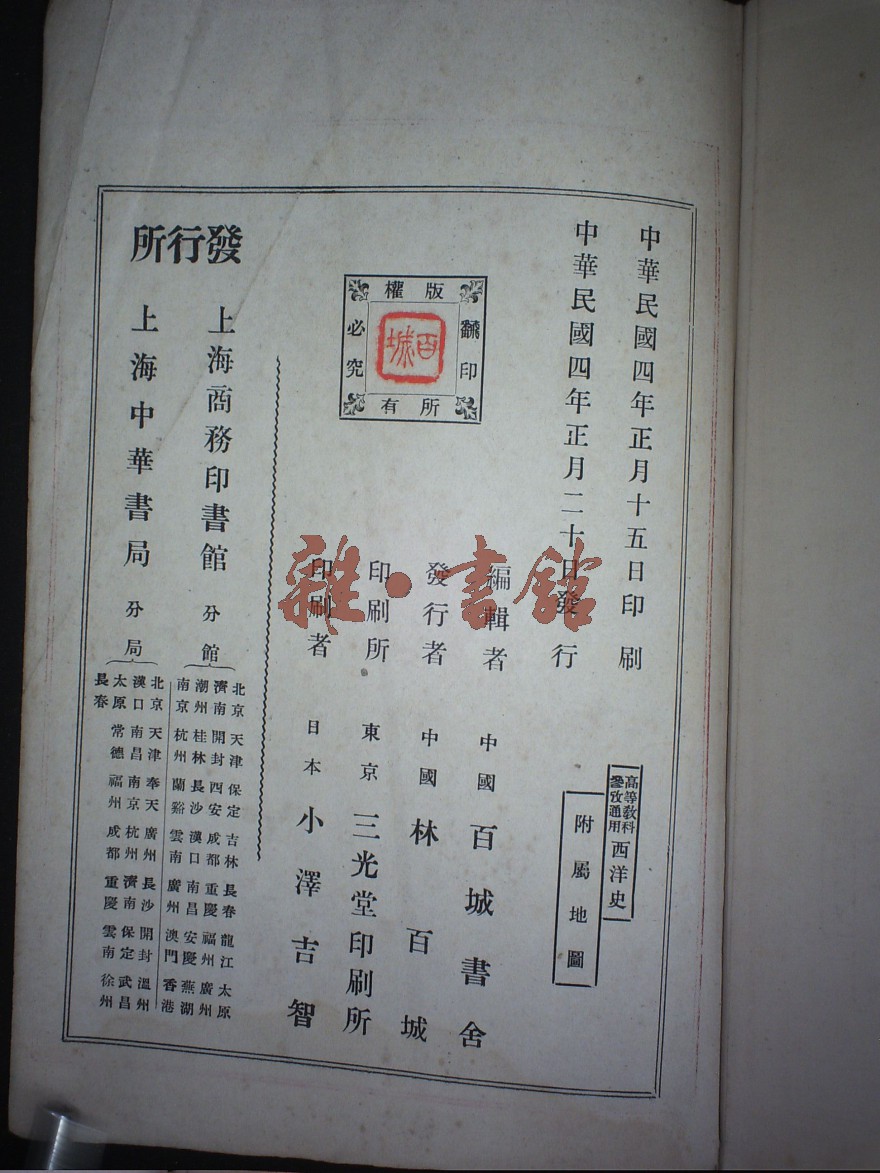 中華民國四年正月十五日印刷
中華民國四年正月二十日發行
高等教科
參攷通用
西洋史
附屬地圖
版權
所有
翻印
必究
百城
編輯者 中國 百城書舍
發行者 中國 林百城
印刷所 東京 三光堂印刷所
印刷者 日本 小澤吉智
發行所
上海商務印書館 分館
北京 天津 保定 吉林 長春 龍江 太原
濟南 開封 西安 成都 重慶 福州 廣州
潮州 桂林 長沙 漢口 南昌 安慶 蕪湖
南京 杭州 蘭谿 雲南 廣州 澳門 香港
上海中華書局 分局
北京 天津 奉天 廣州 長沙 開封 溫州
漢口 南昌 南京 杭州 濟南 保定 武昌
太原 常德 福州 成都 重慶 雲南 徐州
長春
雜·書館